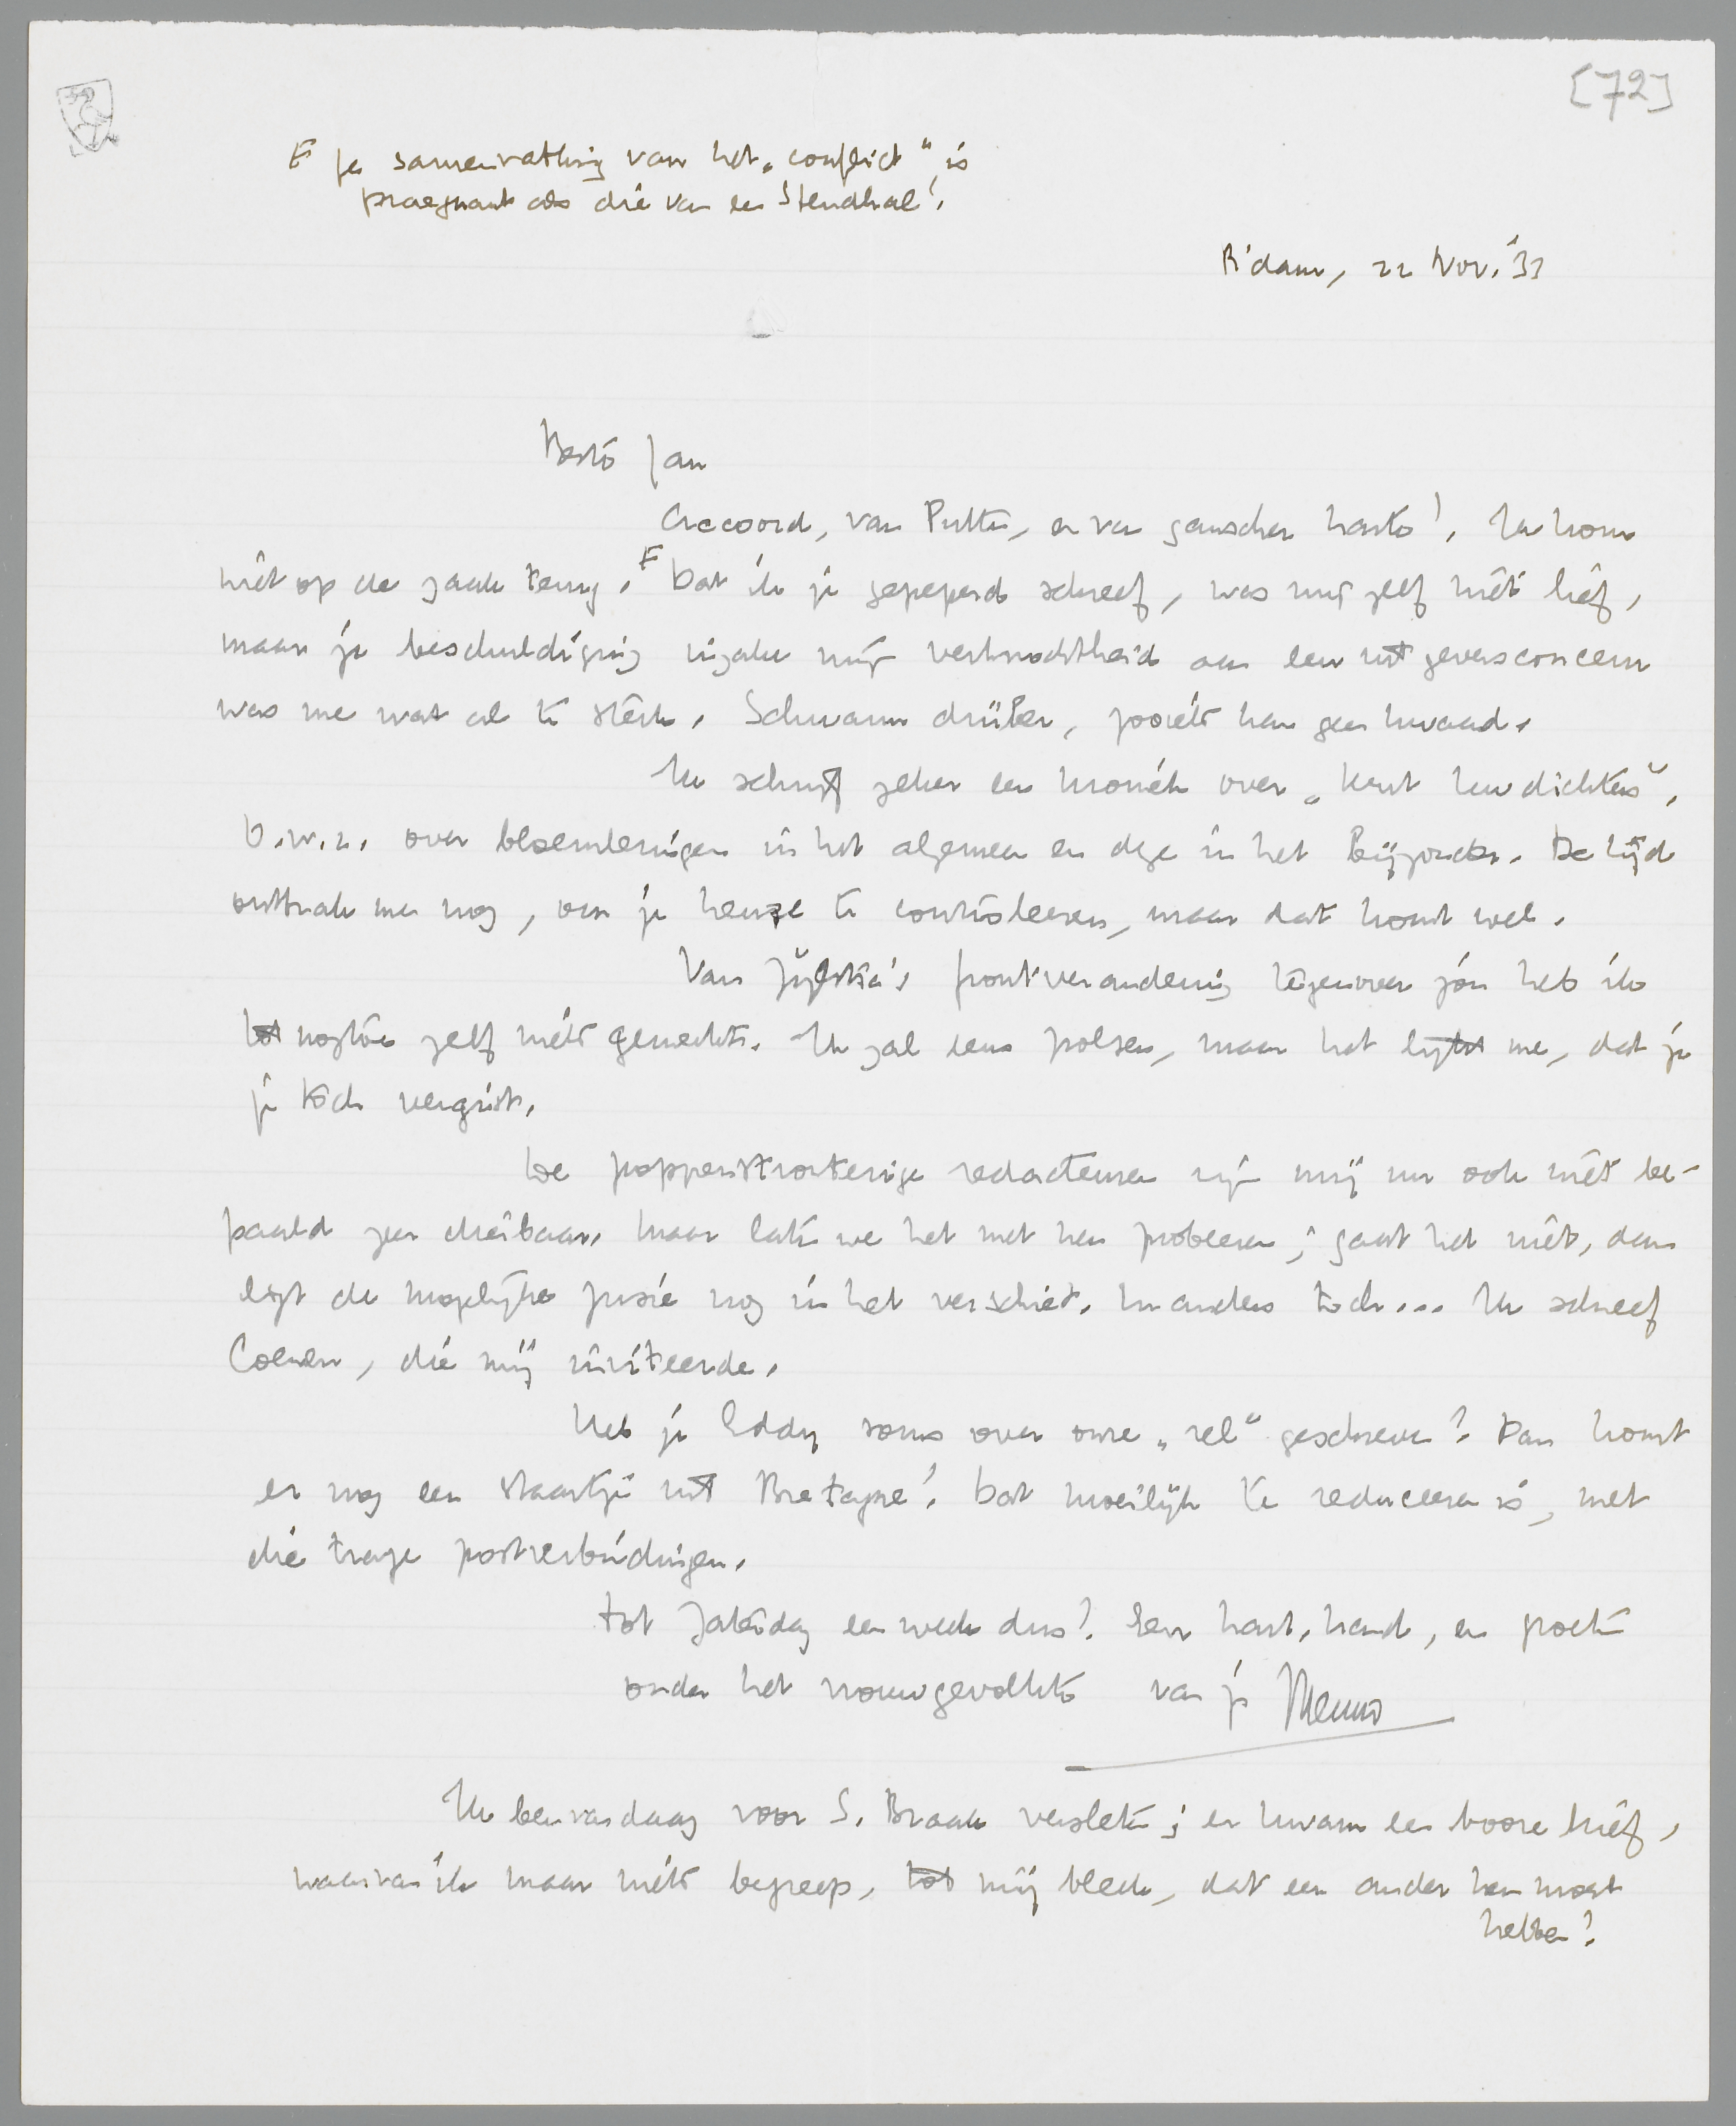 [72]
F Je samenvatting van het „conflict" is
praegnant als die van een Stendhal!
R'dam, 22 Nov. '33
Beste Jan
Accoord, van Putten, en van ganscher harte! Ik kom
niet op de zaak terug. F Dat ik je gepeperd schreef, was mij zelf niet lief,
maar je beschuldiging inzake mijn verknochtheid aan een uitgeversconcern
was me wat al te sterk. Schwamm drüber, pooiers kan geen kwaad.
Ik schrijf zeker een kroniek over „Kent Uw dichters",
b.w.z. over bloemlezingen in het algemeen en deze in het bijzonder. De tijd
ontbrak me nog, om je keuze te controleeren, maar dat komt wel.
Van Zijlstra's frontverandering tegenover jou heb ik
tot nogtoe zelf niets gemerkt. Ik zal eens polsen, maar het lijkt me, dat je
je toch vergist.
De poppenstronterige redacteuren zijn mij nu ook niet be-
paald zeer dierbaar. Maar laten we het met hen probeeren; gaat het niet, dan
ligt de mogelijke fusie nog in het verschiet. En anders toch... Ik schreef
Coenen, die mij inviteerde.
Heb je Eddy soms over onze „rel" geschreven? Dan komt
er nog een staartje uit Bretagne! Dat moeilijk te reduceeren is, met
die trage postverbindingen.
Tot Zaterdag een week dus? Een hart. hand, en groeten
onder het vrouwgevolkte van je Menno
Ik ben vandaag voor S. Braak versleten; er kwam een booze brief,
waarvan ik maar niets begreep, tot mij bleek, dat een ander hem moest
hebben!